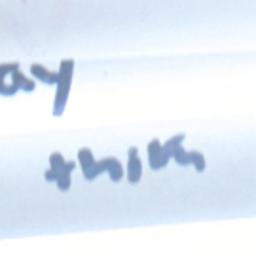 ay
think